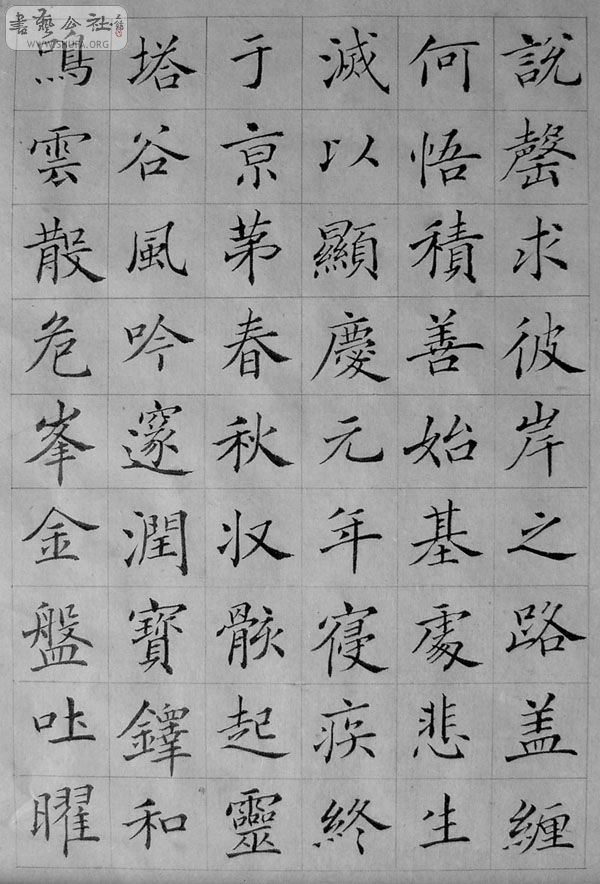 書藝公社
WWW.SHUFA.ORG
說罄求彼岸之路盖纏
何悟積善始基處悲生
滅以顯慶元年寑疾終
于亰苐春秋収骸起靈
塔谷風吟邃潤寶鐸和
鳴雲散危峯金盤吐曜